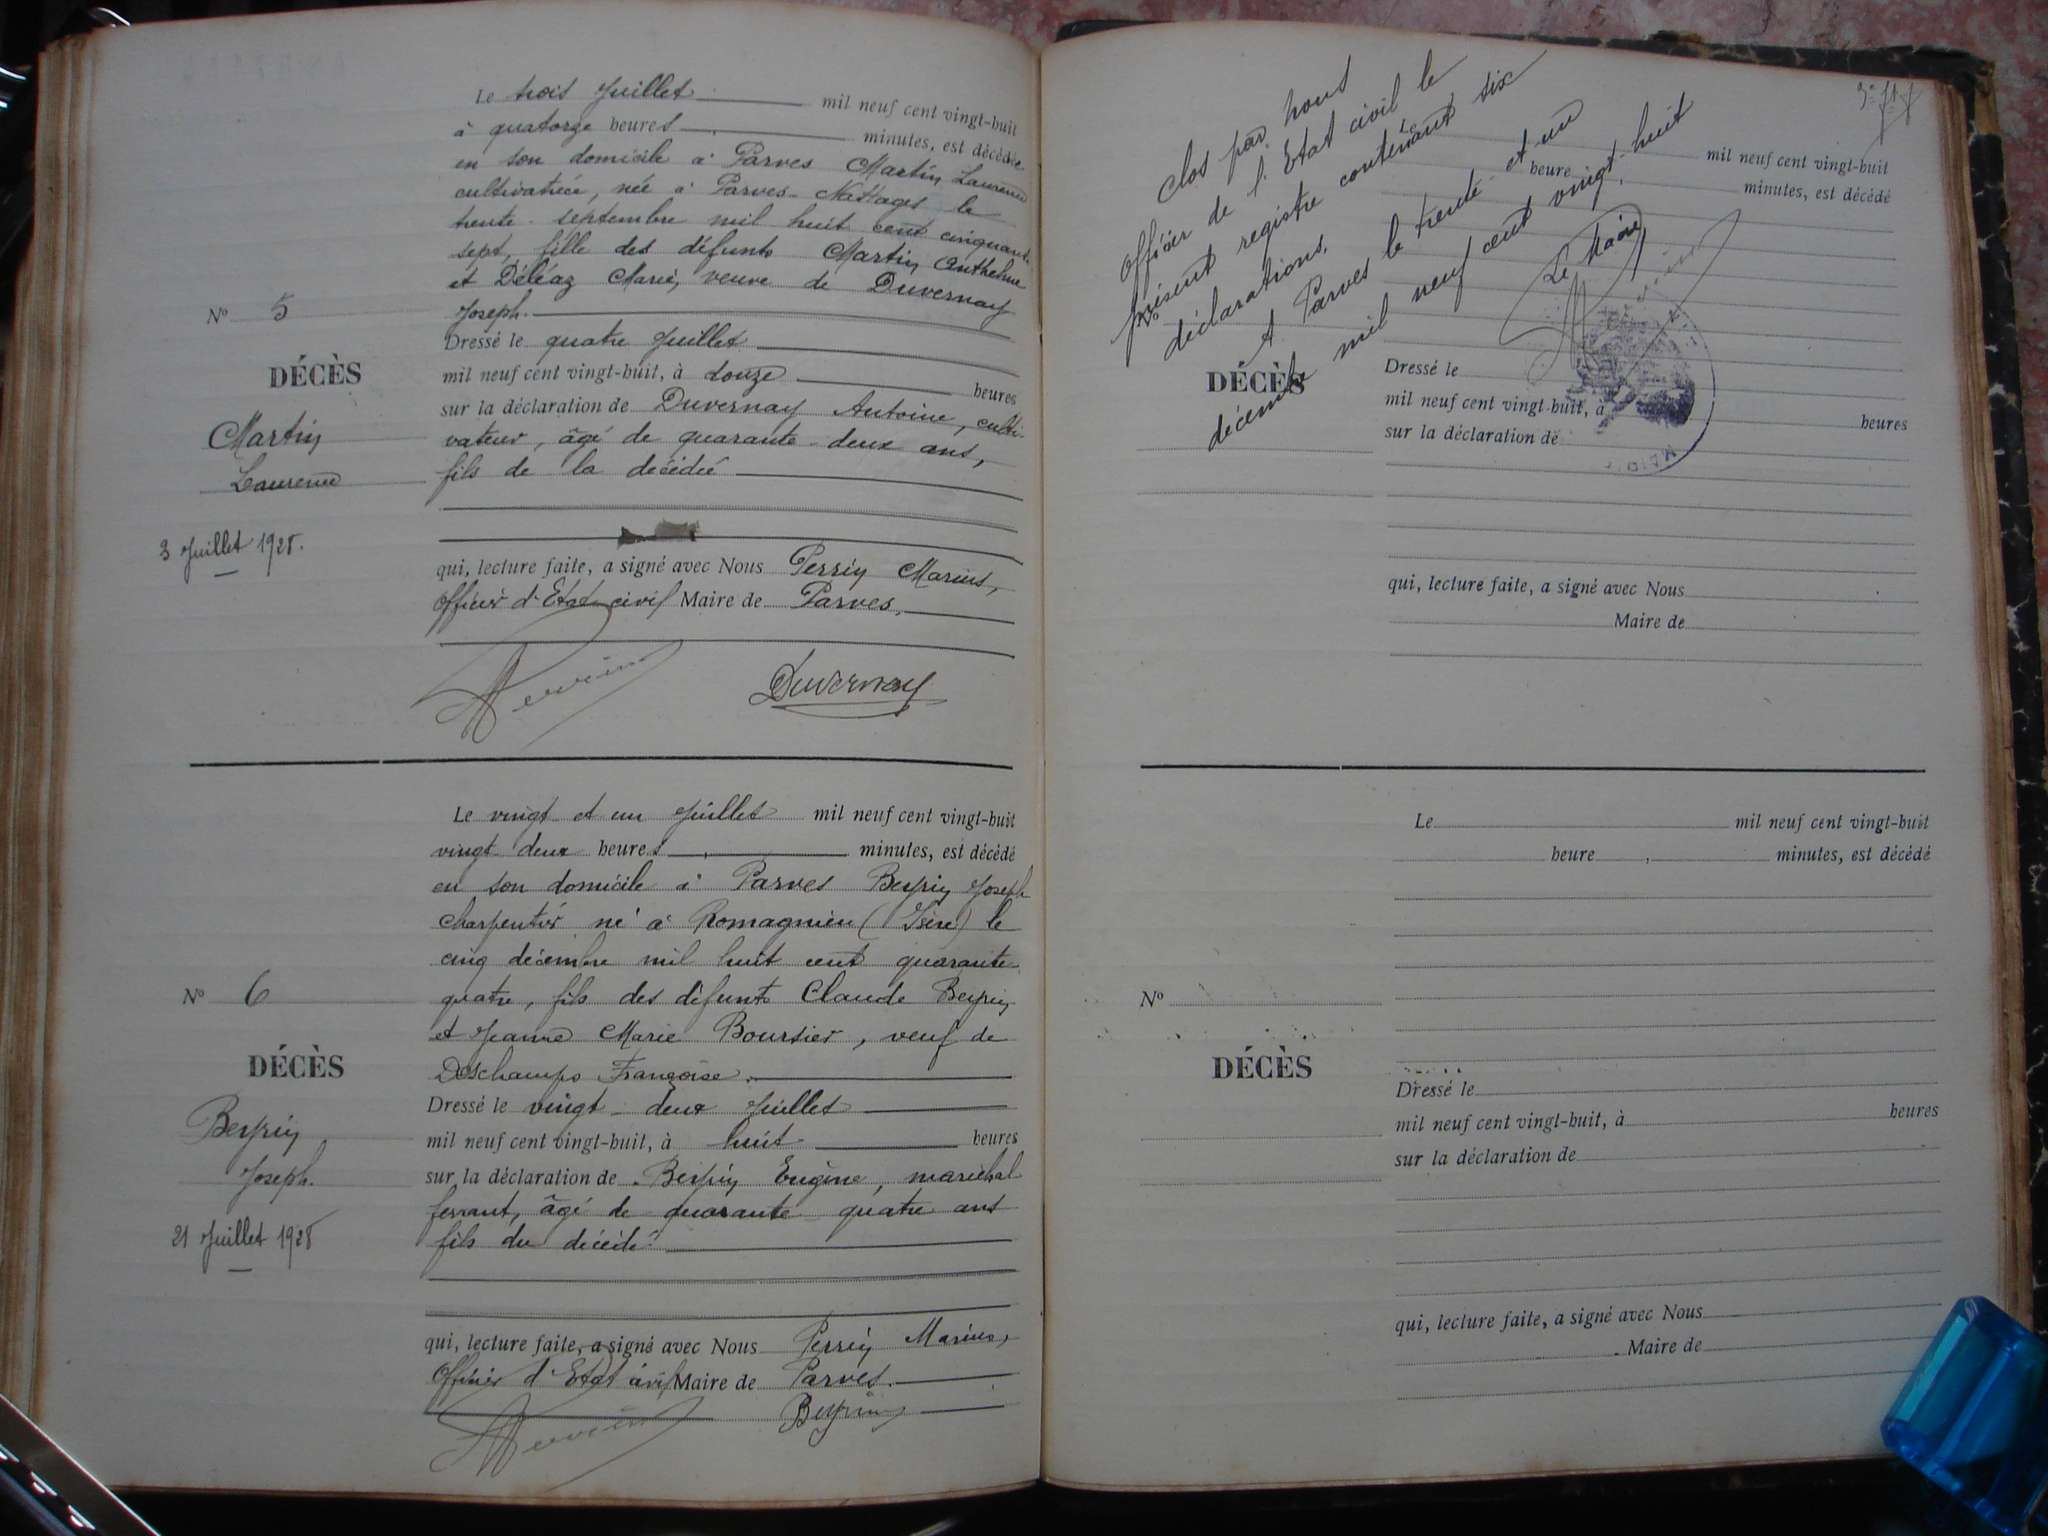 Le trois Juillet mil neuf cent vingt-huit
à quatorze heures minutes, est décédée
en son domicile à Parves Martin Laurence
cultivatrice, née à Parves-Nattages le
trente septembre mil huit cent cinquante
sept, fille des défunts Martin Anthelme
et Déléaz Marie, veuve de Duvernay
Joseph.
Dressé le quatre Juillet
mil neuf cent vingt-huit, à douze heures
sur la déclaration de Duvernay Antoine, culti-
vateur, âgé de quarante-deux ans,
fils de la décédée
qui, lecture faite, a signé avec Nous Perrin Marius,
Officier d'Etat civil Maire de Parves.
Perrin Duvernay
No 5
DÉCÈS
Martin
Laurence
3 Juillet 1928.
Le vingt et un Juillet mil neuf cent vingt-huit
vingt deux heures minutes, est décédé
en son domicile à Parves Joseph
charpentier né à Romagnieu (Isère) le
cinq décembre mil huit cent quarante
quatre, fils des défunts Claude
et Jeanne Marie Boursier, veuf de
Deschamps Françoise.
Dressé le vingt-deux Juillet
mil neuf cent vingt-huit, à huit heures
sur la déclaration de Eugène, maréchal
ferrant, âgé de quarante-quatre ans
fils du décédé
qui, lecture faite, a signé avec Nous Perrin Marius,
Officier d'Etat civil Maire de Parves.
Perrin
No 6
DÉCÈS
Joseph.
21 Juillet 1928
Clos par nous
Officier de l'Etat civil le
présent registre contenant six
déclarations.
A Parves le trente et un
décembre mil neuf cent vingt-huit
Le Maire
Perrin
Le mil neuf cent vingt-huit
heure minutes, est décédé
No
DÉCÈS
Dressé le
mil neuf cent vingt-huit, à heures
sur la déclaration de
qui, lecture faite, a signé avec Nous
Maire de
Le mil neuf cent vingt-huit
heure minutes, est décédé
No
DÉCÈS
Dressé le
mil neuf cent vingt-huit, à heures
sur la déclaration de
qui, lecture faite, a signé avec Nous
Maire de